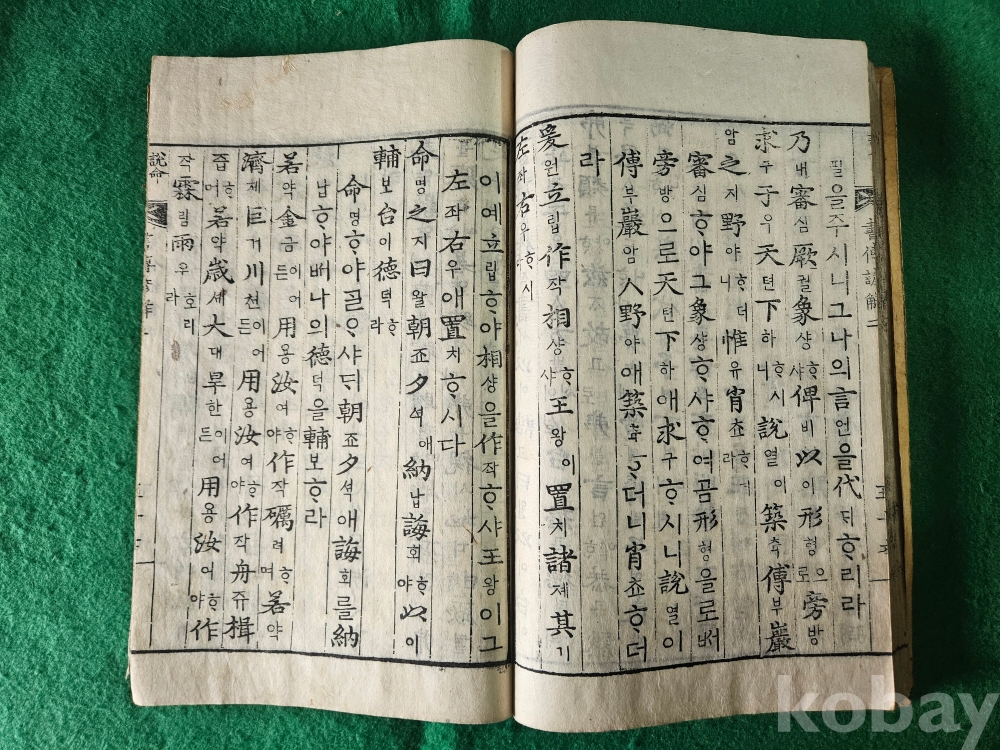 필을주시니그나의言언을代ᄃᆡᄒᆞ리라
乃내審심厥궐象샹ᄒᆞ샤俾비以이形형으로旁방
求구于우天텬下하ᄒᆞ시니說열이築츅傅부巖
암之지野야ᄒᆞ더니惟유肖쵸러라
審심ᄒᆞ야그象샹ᄒᆞ샤ᄒᆞ여곰形형을로ᄡᅥ
旁방으로天텬下하애求구ᄒᆞ시니說열이
傅부巖암人野야애築츅ᄒᆞ더니肖쵸ᄒᆞ더
라
爰원立립作작相샹ᄒᆞ샤王왕이置치諸졔其기
左좌右우ᄒᆞ시
이예立립ᄒᆞ야相샹을作작ᄒᆞ샤王왕이그
左좌右우애置치ᄒᆞ시다
命명之지曰왈朝죠夕셕애納납誨회ᄒᆞ야以이
輔보台이德덕ᄒᆞ라
命명ᄒᆞ야ᄀᆞᆯᄋᆞ샤ᄃᆡ朝죠夕셕애誨회를納
납ᄒᆞ야ᄡᅥ나의德덕을輔보ᄒᆞ라
若약金금이어든用용汝여ᄒᆞ야作작礪려ᄒᆞ며若약
濟졔巨거川쳔이어든用용汝여ᄒᆞ야作작舟쥬楫
즙ᄒᆞ며若약歲셰大대旱한이어든用용汝여ᄒᆞ야作
작霖림雨우호리라
說命
kobay